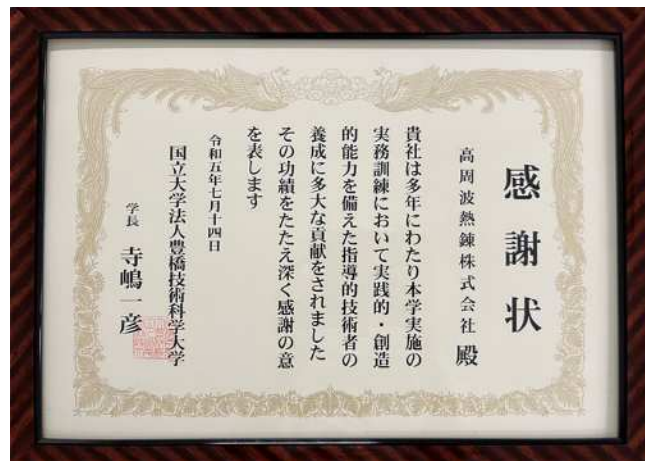 感謝状
高周波熱錬株式会社 殿
貴社は多年にわたり本学実施の
実務訓練において実践的・創造
的能力を備えた指導的技術者の
養成に多大な貢献をされました
その功績をたたえ深く感謝の意
を表します
令和五年七月十四日
国立大学法人豊橋技術科学大学
学長 寺嶋一彦